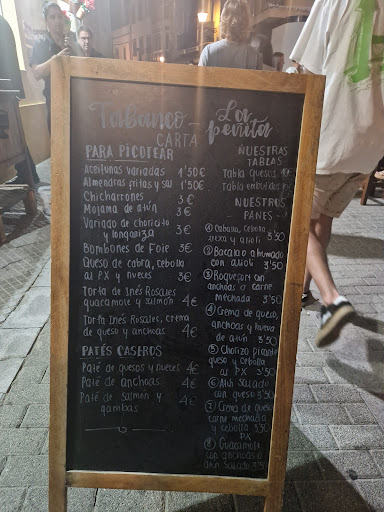 Tabanco La
CARTA peñita
PARA PICOTEAR
Aceitunas variadas 1'50€
Almendras fritas y sal 1'50€
Chicharrones 3€
Mojama de atún 3€
Variado de choricito
y longaniza 3€
Bombones de Foie 3€
Queso de cabra, cebolla
al PX y nueces 3€
Torta de Inés Rosales
guacamole y salmón 4€
Torta Inés Rosales, crema
de queso y anchoas 4€
PATÉS CASEROS
Paté de quesos y nueces 4€
Paté de anchoas 4€
Paté de salmón y 4€
gambas
NUESTRAS
TABLAS
Tabla quesos
Tabla embutidos
NUESTROS
PANES
① Caballa, cebolla
y alioli 3'50
② Bacalao ahumado
con alioli 3'50
③ Roquefort con
anchoas o carne
mechada 3'50
④ Crema de queso,
anchoas y
atún 3'50
⑤ Chorizo picante
queso y cebolla
al PX 3'50
⑥ Atún salado
con queso 3'50
⑦ Crema de queso
carne mechada
y cebolla 3'50
PX
⑧ Guacamole
con anchoas o
atún salado 3'50